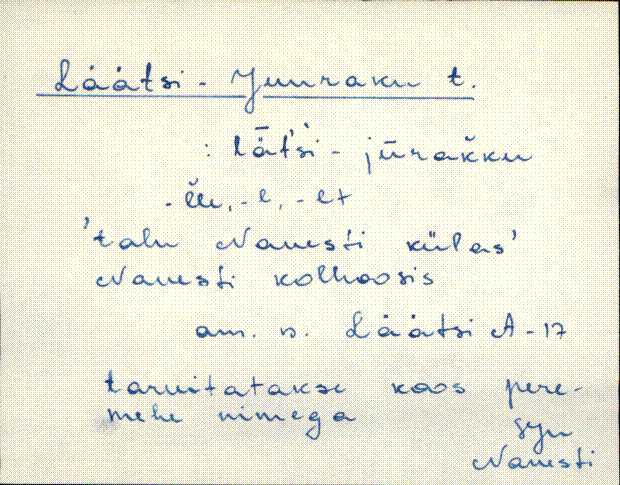 Läätsi - Juuraku t.
: lǟt's'i - jūrak̆ku
-ĕu, -e, -et
'talu Navesti külas'
Navesti kolhoosis
am. n. Läätsi A-17
tarvitatakse koos pere-
mehe nimega
Navesti